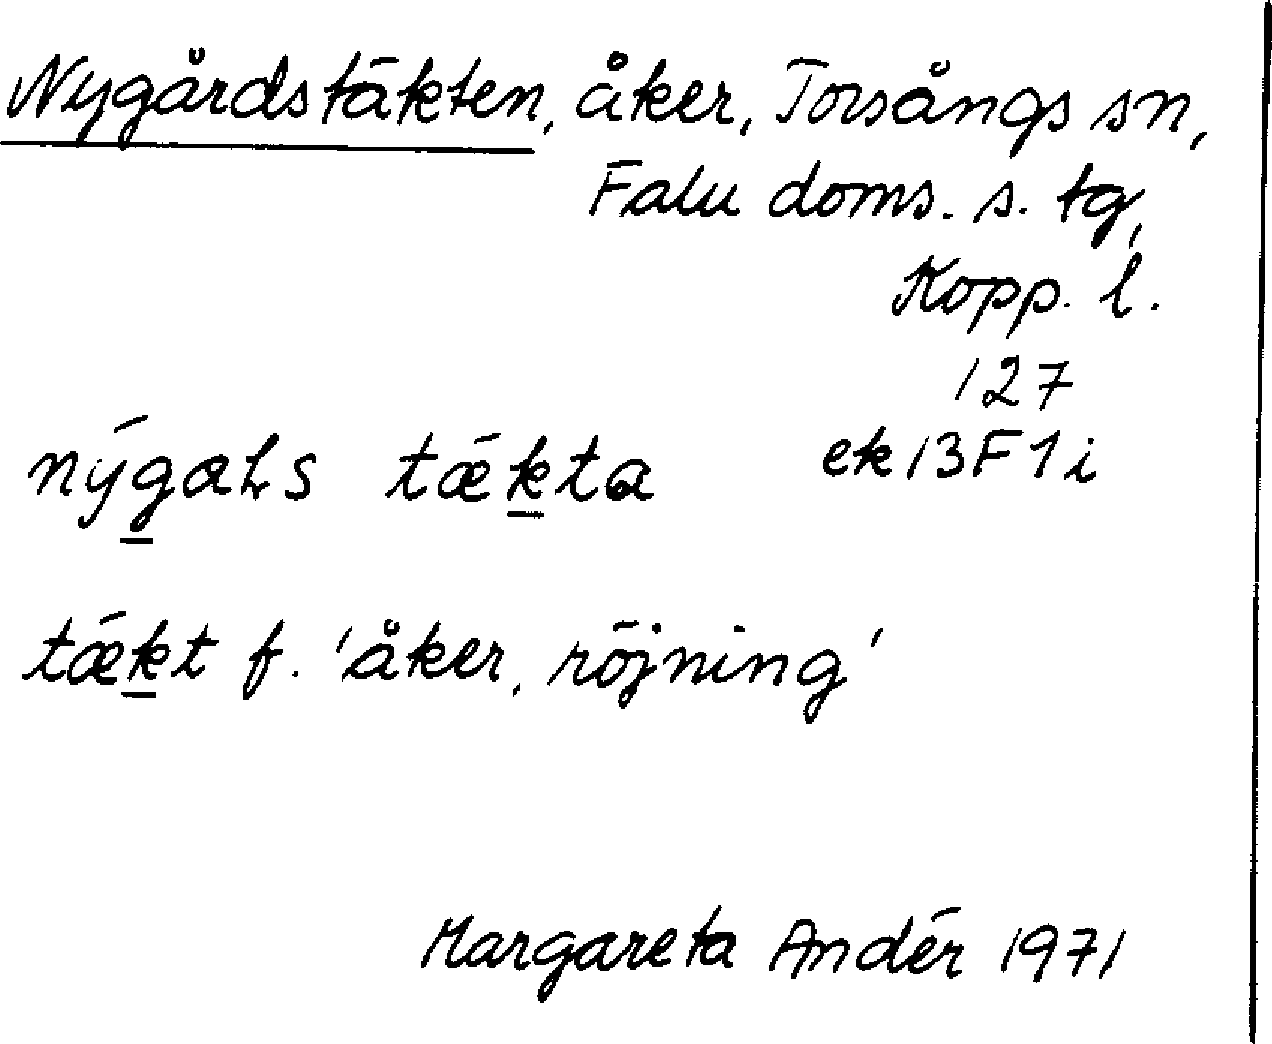 Nygårdstäkten, åker, Torsångs sn,
Falu doms. s. tg,
Kopp. l.
127
nýgaʟs tǽkta ek 13F1i
tǽkt f. 'åker, röjning'
Margareta Andér 1971